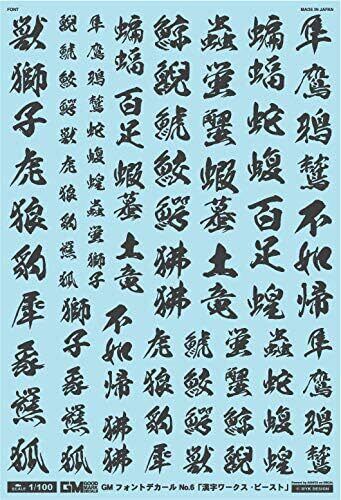 FONT
MADE IN JAPAN
隼鷹鴉鷲不如帰
蝙蝠蛇蝮百足蝗
蟲蟹蝦蟇土竜
鯨鯢鯱鮫鰐狒狒
蝙蝠百足蝦蟇土竜
隼鷹鴉鷲蛇蝮蝗蟲蟹獅子
鯨鯢鯱鮫鰐獣虎狼豹犀豕羆狐
獣獅子虎狼豹犀豕羆狐
隼鷹鴉鷲
蟲蛇蝮蝗
獣蟹鯨鯢
鯱鮫鰐
虎狼豹犀
不如帰狒狒
獅子豕羆狐
SCALE 1/100 GM GMフォントデカール No.6「漢字ワークス・ビースト」
© MYK DESIGN